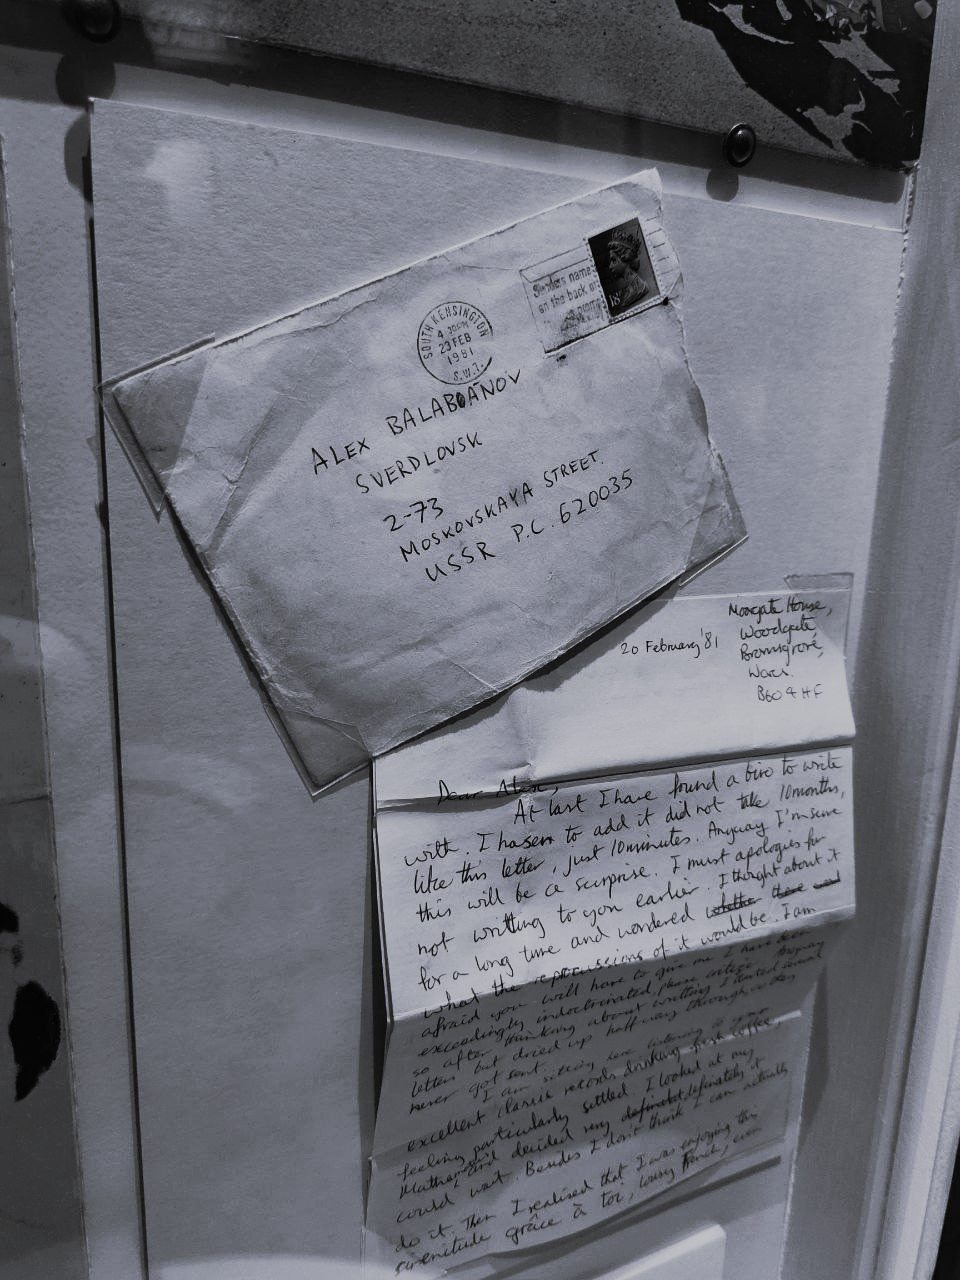 SOUTH KENSINGTON
4 30PM
23 FEB
1981
S.W.7.
Senders name
on the back
18
ALEX BALABANOV
SVERDLOVSK
2-73
MOSKOVSKAYA STREET.
USSR P.C. 620035
Moorgate House,
20 February '81 Woodgate,
Bromsgrove,
Worcs.
B60 4HF
Dear Alex,
At last I have found a biro to write
with. I hasten to add it did not take 10 months,
like this letter, just 10 minutes. Anyway I'm sure
this will be a surprise. I must apologies for
not writting to you earlier. I thought about it
for a long time and wondered whether there
what the repercussions of it would be. I am
afraid you will have to give me I have been
exceedingly indoctrinated please
so after thinking about writting I started several
letters but dried up half way through, so they
never got sent.
I am sitting here listening to your
excellent classic records drinking first coffee,
feeling particularly settled. I looked at my
Maths, and decided very definitely it
could wait. Besides I don't think I can actually
do it. Then I realised that I was enjoying this
serenitude grâce à toi,